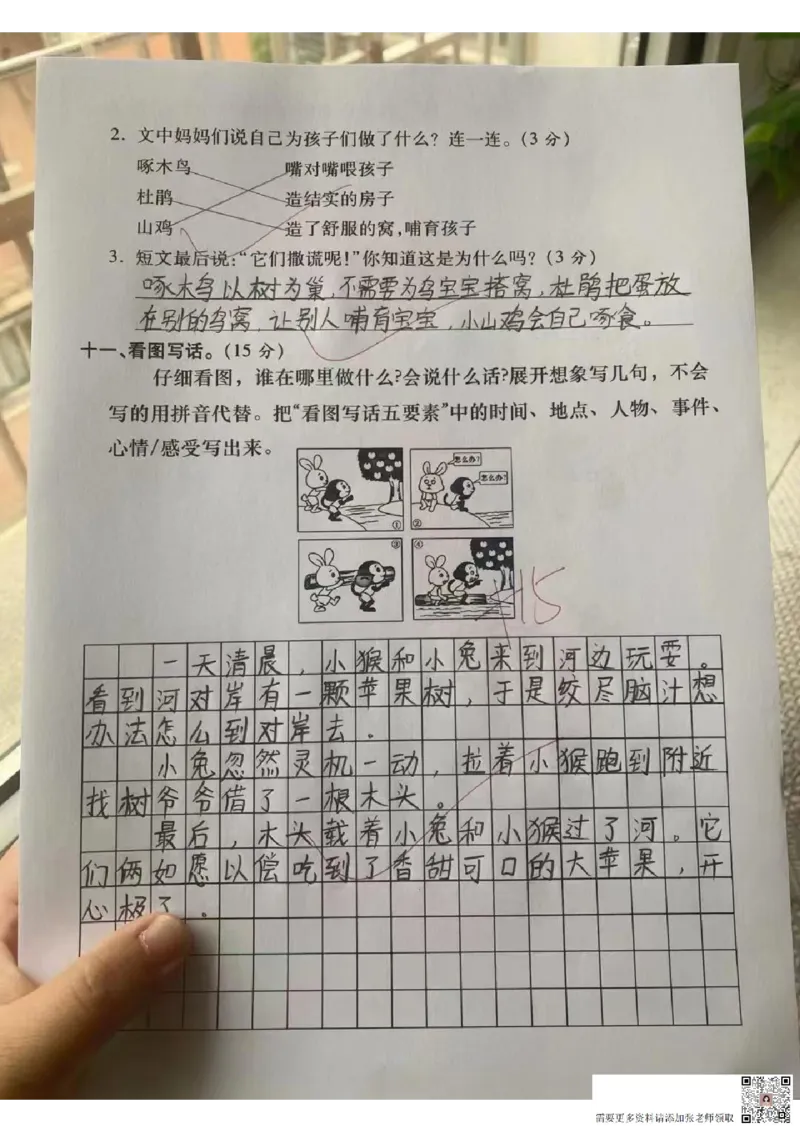 2. 文中妈妈们说自己为孩子们做了什么？连一连。(3 分)
啄木鸟 嘴对嘴喂孩子
杜鹃 造结实的房子
山鸡 造了舒服的窝，哺育孩子
3. 短文最后说：“它们撒谎呢！”你知道这是为什么吗？(3 分)
啄木鸟以树为巢，不需要为鸟宝宝搭窝，杜鹃把蛋放
在别的鸟窝，让别人哺育宝宝，小山鸡会自己啄食。
十一、看图写话。(15 分)
仔细看图，谁在哪里做什么？会说什么话？展开想象写几句，不会
写的用拼音代替。把“看图写话五要素”中的时间、地点、人物、事件、
心情/感受写出来。
怎么办？
怎么办？
① ②
③ ④
15
一天清晨，小猴和小兔来到河边玩耍。
看到河对岸有一颗苹果树，于是绞尽脑汁想
办法怎么到对岸去。
小兔忽然灵机一动，拉着小猴跑到附近
找树爷爷借了一根木头。
最后，木头载着小兔和小猴过了河。它
们俩如愿以偿吃到了香甜可口的大苹果，开
心极了。
需要更多资料请添加张老师领取